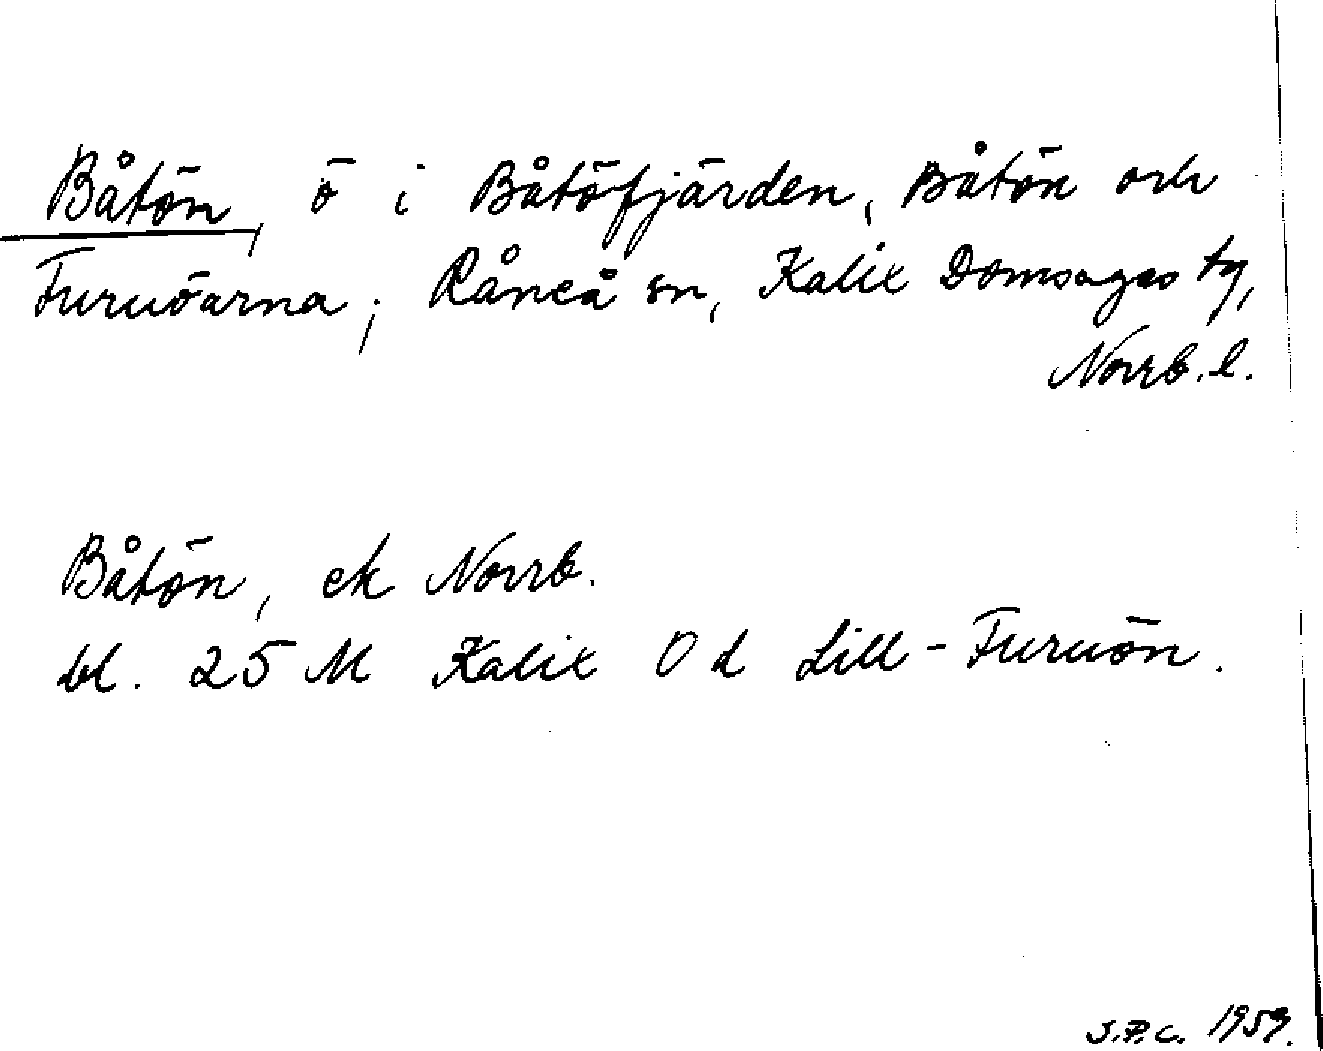 Båtön, ö i Båtöfjärden, Båtön och
Furuöarna; Råneå sn, Kalix Domsagas tg,
Norrb. l.
Båtön, ek Norrb.
bl. 25 M Kalix Od Lill-Furuön.
J.P.C. 1959.